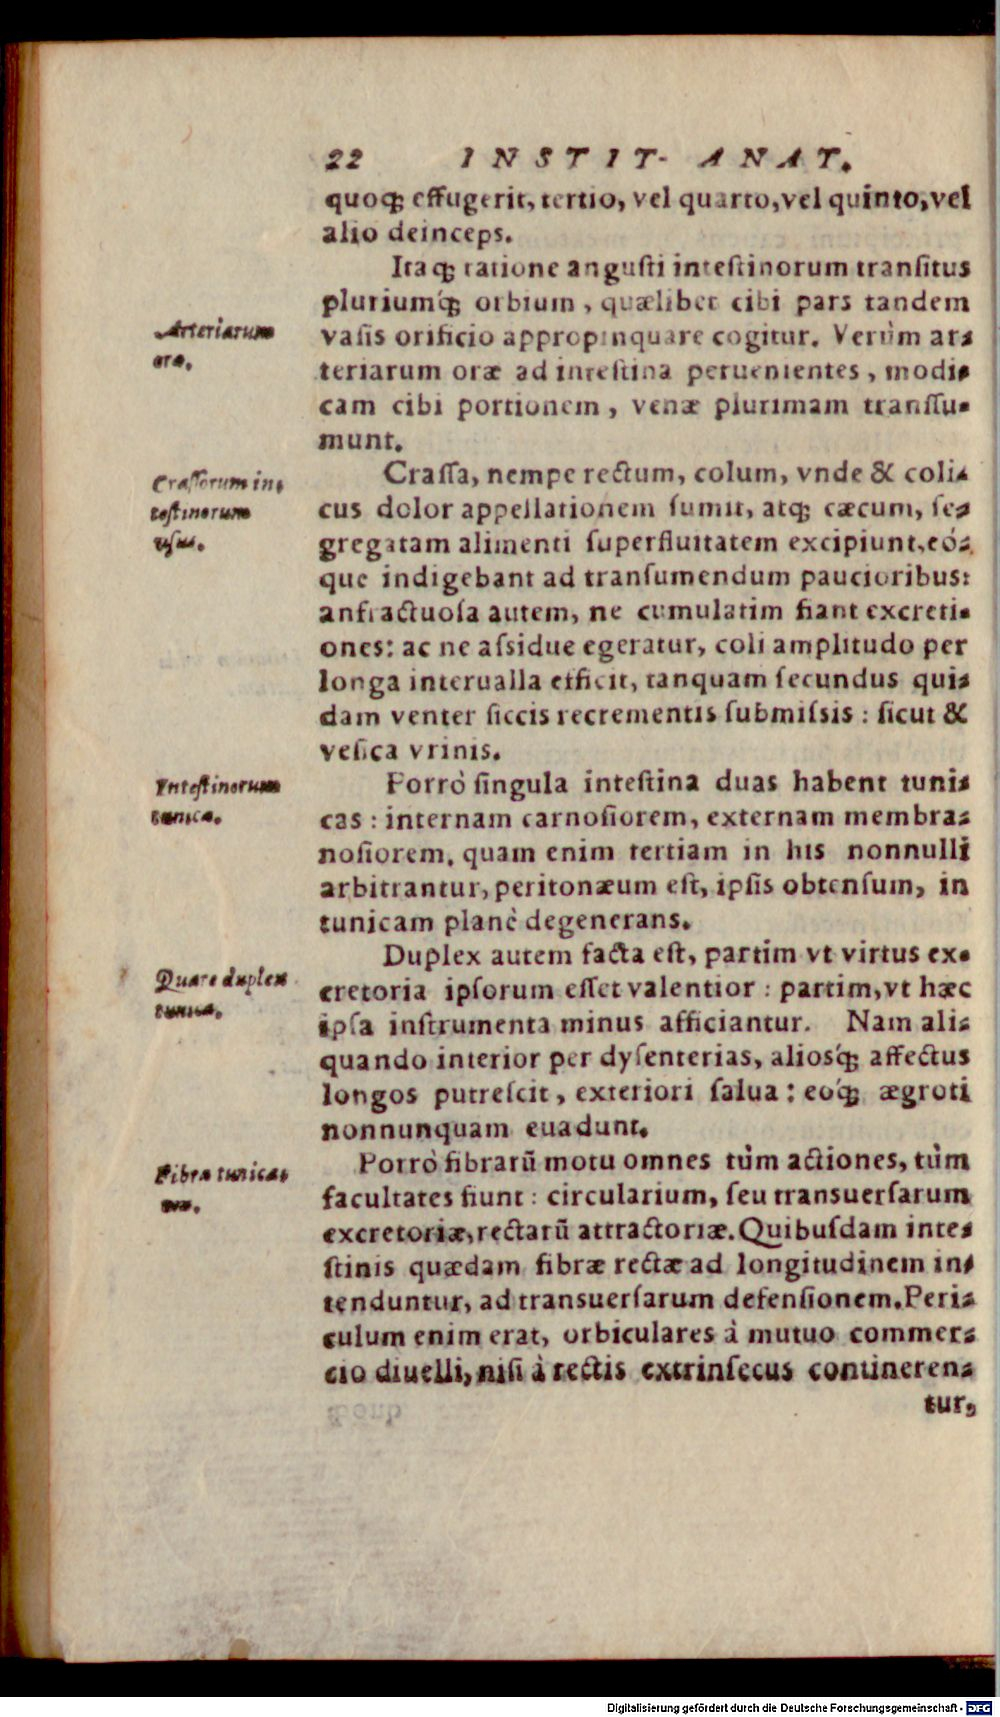 22 INSTIT. ANAT.
quoq; effugerit, tertio, vel quarto, vel quinto, vel
alio deinceps.
Itaq; ratione angusti intestinorum transitus
pluriumq́; orbium, quælibet cibi pars tandem
Arteriarum
oræ.
vasis orificio appropinquare cogitur. Verùm ar-
teriarum oræ ad intestina peruenientes, modi-
cam cibi portionem, venæ plurimam transsu-
munt.
Crassorum in-
testinorum
usus.
Crassa, nempe rectum, colum, vnde & coli-
cus dolor appellationem sumit, atq; cæcum, se-
gregatam alimenti superfluitatem excipiunt, eó-
que indigebant ad transumendum paucioribus:
anfractuosa autem, ne cumulatim fiant excreti-
ones: ac ne assidue egeratur, coli amplitudo per
longa interualla efficit, tanquam secundus qui-
dam venter siccis recrementis submissis: sicut &
vesica vrinis.
Intestinorum
tunicæ.
Porrò singula intestina duas habent tuni-
cas: internam carnosiorem, externam membra-
nosiorem, quam enim tertiam in his nonnulli
arbitrantur, peritonæum est, ipsis obtensum, in
tunicam planè degenerans.
Quare duplex
tunica.
Duplex autem facta est, partim vt virtus ex-
cretoria ipsorum esset valentior: partim, vt hæc
ipsa instrumenta minus afficiantur. Nam ali-
quando interior per dysenterias, aliosq́; affectus
longos putrescit, exteriori salua: eoq́; ægroti
nonnunquam euadunt.
Fibræ tunica-
rum.
Porrò fibrarũ motu omnes tùm actiones, tùm
facultates fiunt: circularium, seu transuersarum
excretoriæ, rectarũ attractoriæ. Quibusdam inte-
stinis quædam fibræ rectæ ad longitudinem in-
tenduntur, ad transuersarum defensionem. Peri-
culum enim erat, orbiculares à mutuo commer-
cio diuelli, nisi à rectis extrinsecus contineren-
tur,
Digitalisierung gefördert durch die Deutsche Forschungsgemeinschaft - DFG